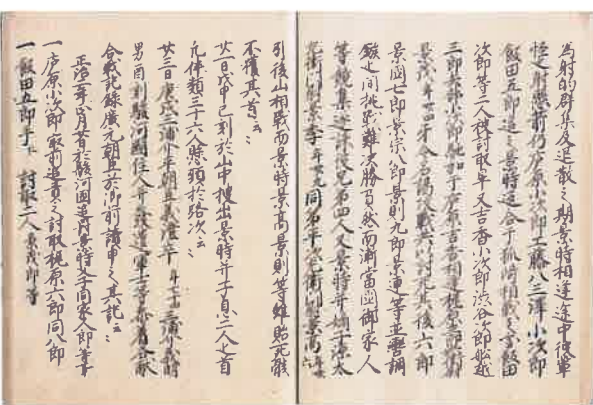 為射的群集及退散之期景時相逢途中彼輩
恠之射懸箭仍廬原小次郎工藤八三澤小次郎
飯田五郎追之景時返合于狐崎相戰之處飯田
次郎等二人被討取畢又吉香小次郎澁谷次郎
三郎 廬原吉香相逢梶原三郎兵衛尉
景茂 年卅四 令名謁攻戰共以討死其後六郎
景國七郎景宗八郎景則九郎景連等並轡調
鏃之間挑戰難決勝負然而漸當國御家人
等競集遂誅彼兄弟四人又景時并嫡子源太
左衛門尉景季 年卅九 同弟平次左衛門尉景高 年卅六
引後山相戰而景時景高景則等雖貽死骸
不獲其首云云
廿一日戊申巳刻於山中搜出景時并子息二人之首
凡伴類三十六人懸頭於路次云云
廿三日庚戌 三浦介平朝臣義澄卒 年七十四 三浦介義明
男 酉刻駿河國住人并發遣軍士等參着各獻
合戰記録廣元朝臣於御前讀申之其記云
正治二年正月廿日於駿河國追罸景時父子同家人郎等事
一廬原小次郎最前追責之討取梶原六郎同八郎
一飯田五郎手 討取二人 景茂郎等